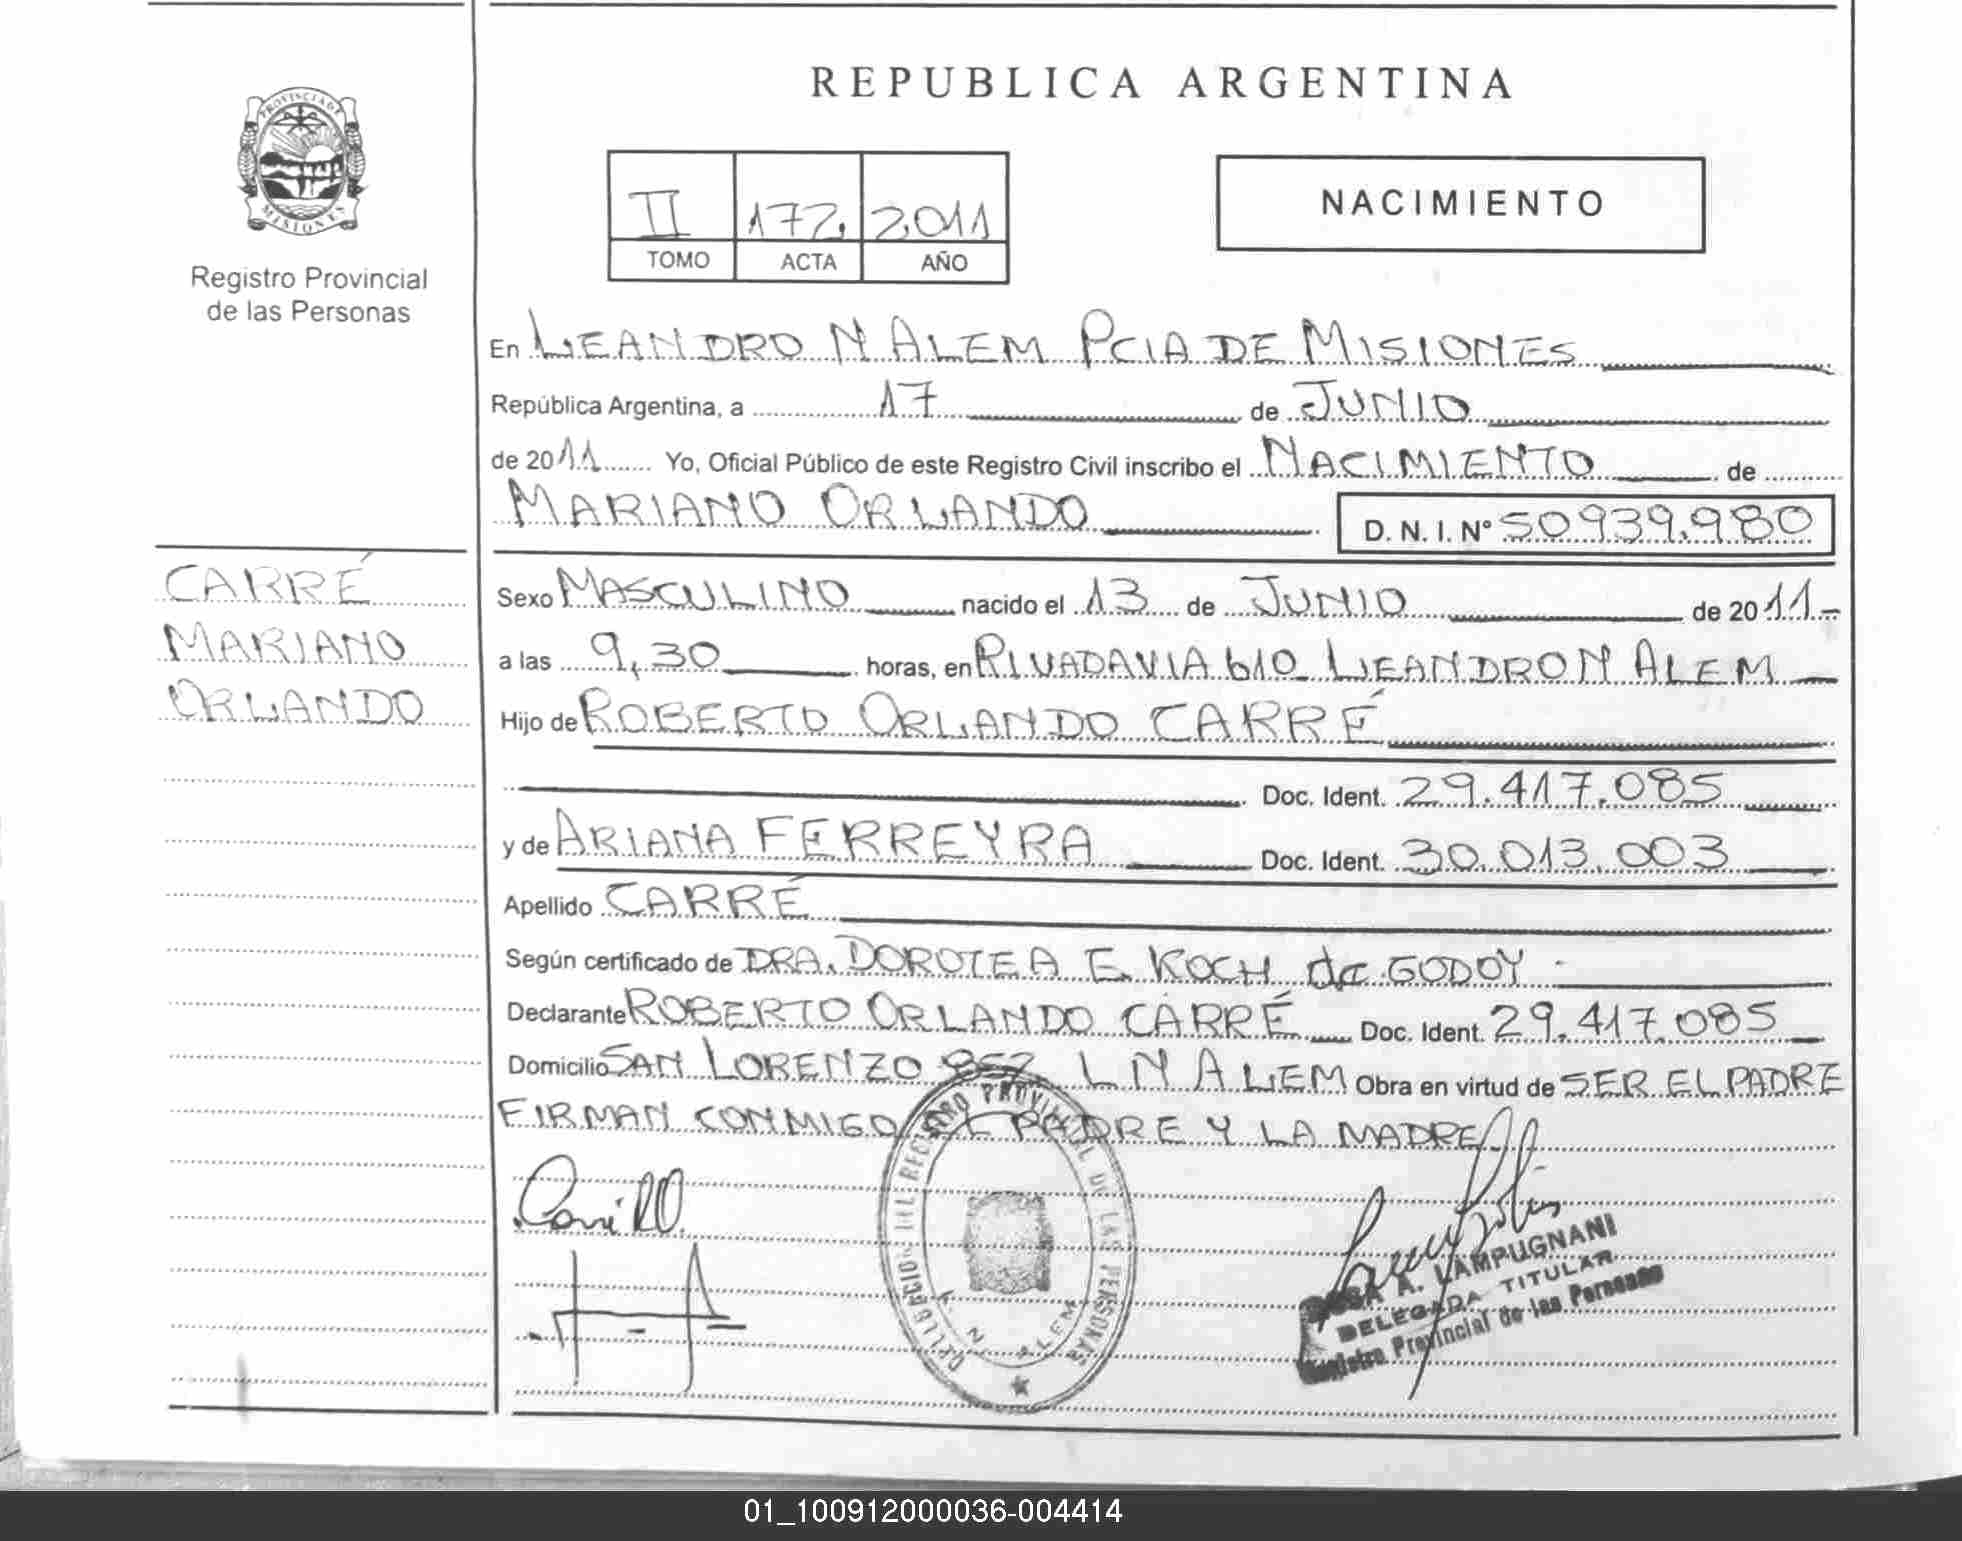 PROVINCIA DE
MISIONES
Registro Provincial
de las Personas
CARRÉ
MARIANO
ORLANDO
REPUBLICA ARGENTINA
II 172. 2011
TOMO ACTA AÑO
NACIMIENTO
En LEANDRO N ALEM PCIA DE MISIONES
República Argentina, a 17 de JUNIO
de 2011 Yo, Oficial Público de este Registro Civil inscribo el NACIMIENTO de
MARIANO ORLANDO D. N. I. Nº 50939.980
Sexo MASCULINO nacido el 13 de JUNIO de 2011-
a las 9,30 horas, en RIVADAVIA 610 LEANDRO N ALEM
Hijo de ROBERTO ORLANDO CARRÉ
Doc. Ident. 29.417.085
y de ARIANA FERREYRA Doc. Ident. 30.013.003
Apellido CARRÉ
Según certificado de DRA. DOROTEA E. KOCH de GODOY -
Declarante ROBERTO ORLANDO CARRÉ Doc. Ident. 29.417.085
Domicilio SAN LORENZO L N ALEM Obra en virtud de SER EL PADRE
FIRMAN CONMIGO EL PADRE Y LA MADRE
DELEGACION DEL REGISTRO PROVINCIAL DE LAS PERSONAS
N. ALEM
A. LAMPUGNANI
DELEGADA TITULAR
Registro Provincial de las Personas
01_100912000036-004414